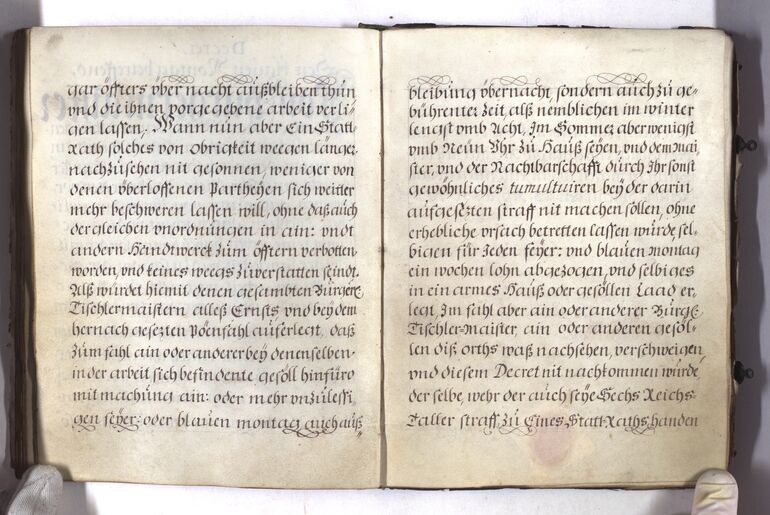 gar öffters über nacht außbleiben thün
vnd die ihnen vorgegebene arbeit verli-
gen lassen, Wann nün aber Ein Statt-
Rath solches von Obrigkeit weegen länger
nachzüsehen nit gesonnen, weniger von
denen überloffenen Partheyen sich weitter
mehr beschweren lassen will, ohne daß auch
dergleichen vnordnüngen in ain: vndt
andern Handtwerck züm öfftern verbotten
worden, vnd keines weegs züverstatten seindt.
Alß würdet hiemit denen gesambten Bürger:
Tischlermaistern alleß Ernsts vnd bey dem
hernach gesezten Pöenfahl auferlegt, daß
züm fahl ain oder anderer bey denenselben
in der arbeit sich befindente gesöll hinfüro
mit machüng ain: oder mehr vnzülessi-
gen feÿer: oder blauen montag auch auß
bleibüng übernacht, sondern aüch zü ge-
bührenter Zeit, alß nemblichen im winter
lengst vmb Acht, Im Sommer aber wenigst
vmb Neün Vhr zü Hauß seyen, vnd dem mai-
ster, vnd der Nachtbarschafft dürch Ihr sonst
gewöhnliches tumultuiren bey der darin
aufgesezten straff nit machen sollen, ohne
erhebliche vrsach betretten lassen würde, sel-
bigen für Jeden feyer: vnd blauen montag
ein wochen lohn abgezogen, vnd selbiges
in ein armes Hauß oder gesöllen Laad er-
legt, Im fahl aber ain oder anderer Bürgl:
Tischler-Maister, ain oder anderen gesöl-
len diß orths waß nachsehen, verschweigen
vnd diesem Decret nit nachkommen würde
derselbe, wehr der auch seye Sechs Reichs-
Taller straff, zü Eines Statt-Raths handen